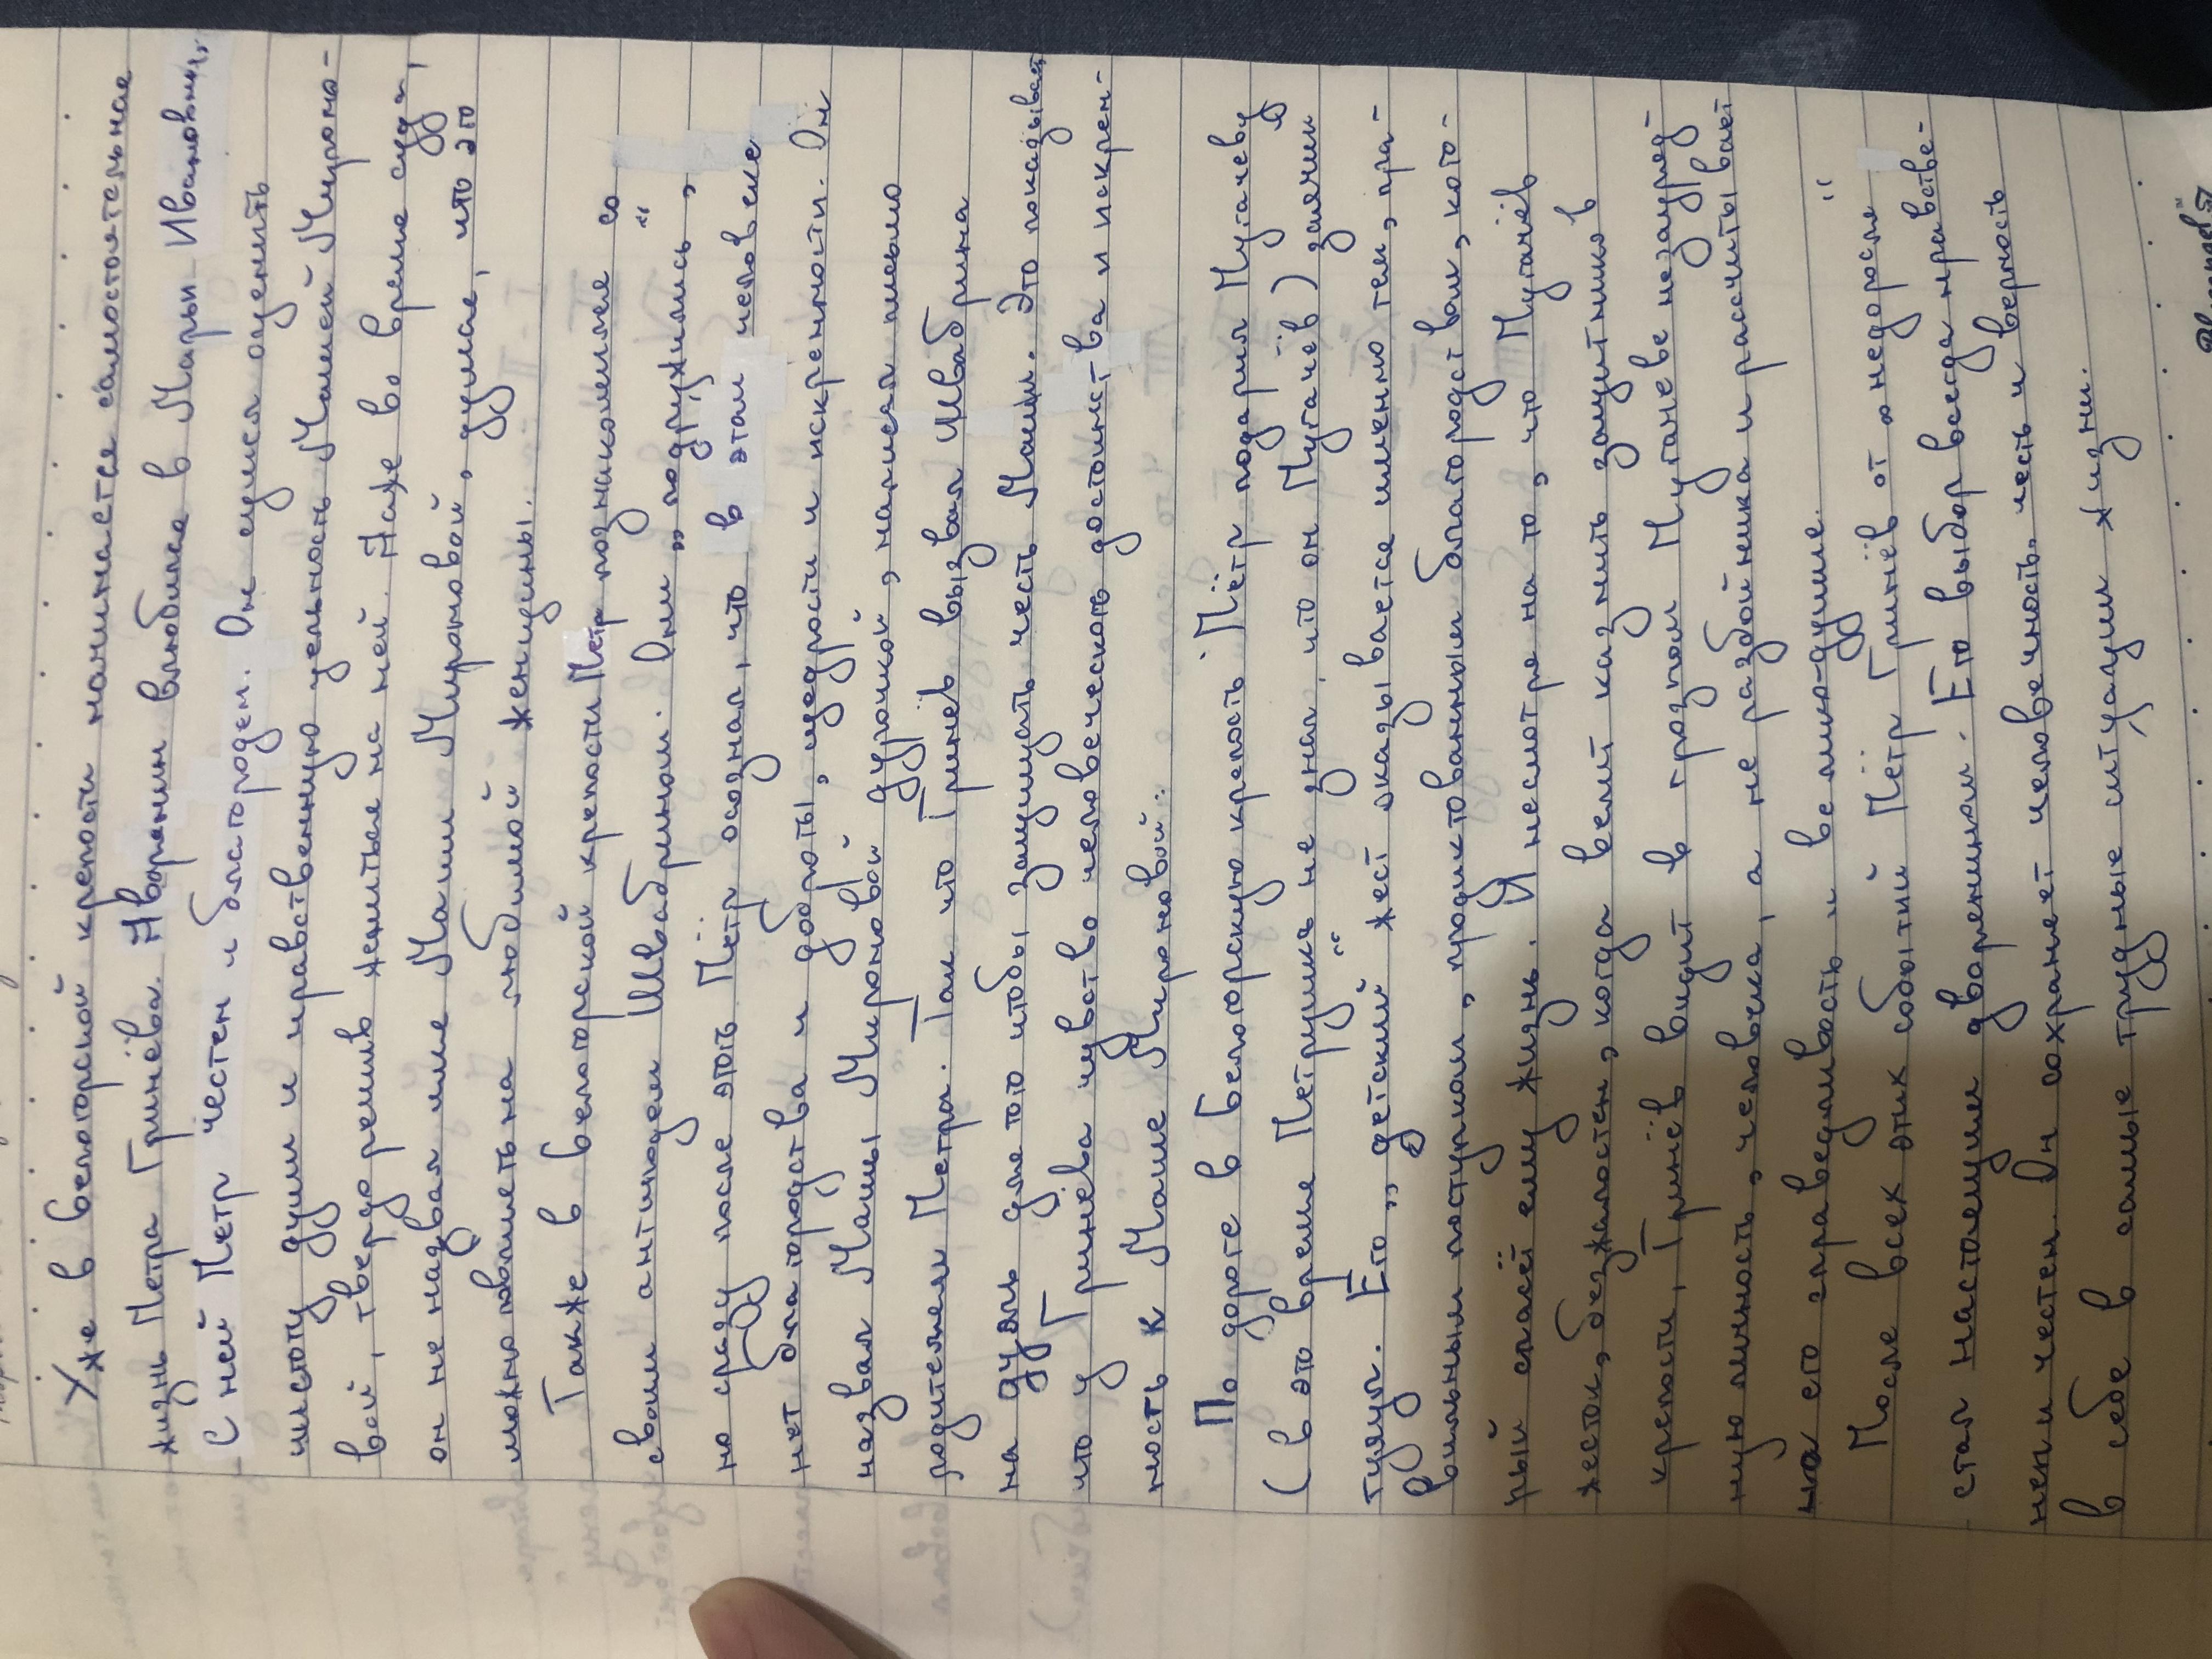 Уже в белогорской крепости начинается самостоятельная
жизнь Петра Гринёва. Дворянин влюбился в Марьи Ивановны,
С ней Петр честен и благороден. Он сумел оценить
чистоту души и нравственную цельность Машей Мироно-
вой, твердо решив жениться на ней. Даже во время суда,
он не назвал имя Маши Мироновой, думая, что это
может повлиять на любимой женщины.
Также в белогорской крепости Петр познакомился со
своим антиподом Швабриным. Они „подружились",
но сразу после этого Пётр осознал, что в этом человеке
нет благородства и доброты, щедрости и искренности. Он
назвал Машы Мироновой дурочкой, написал письмо
родителям Петра. Так что Гринёв вызвал Швабрина
на дуэль для того чтобы защищать честь Маши. Это показывает
что у Гринева чувство человеческого достоинства и искрен-
ность к Маше Мироновой.
По дороге в Белогорскую крепость Пётр подарил Пугачеву
(в это время Петруша не знал, что он Пугачёв) заячий
тулуп. Его „детский" жест оказывается именно тем, пра-
вильным поступком, продиктованным благородством, кото-
рый спасёт ему жизнь. И несмотря на то, что Пугачёв
жесток, безжалостен, когда велит казнить защитников
крепости, Гринёв видит в грозном Пугачеве незауряд-
ную личность, человека, а не разбойника и рассчитывает
на его справедливость и великодушие.
После всех этих событий Пётр Гринёв от „недоросля"
стал настоящим дворянином. Его выбор всегда нравстве-
нен и честен. Он сохраняет человечность, честь и верность
в себе в самые трудные ситуации жизни.